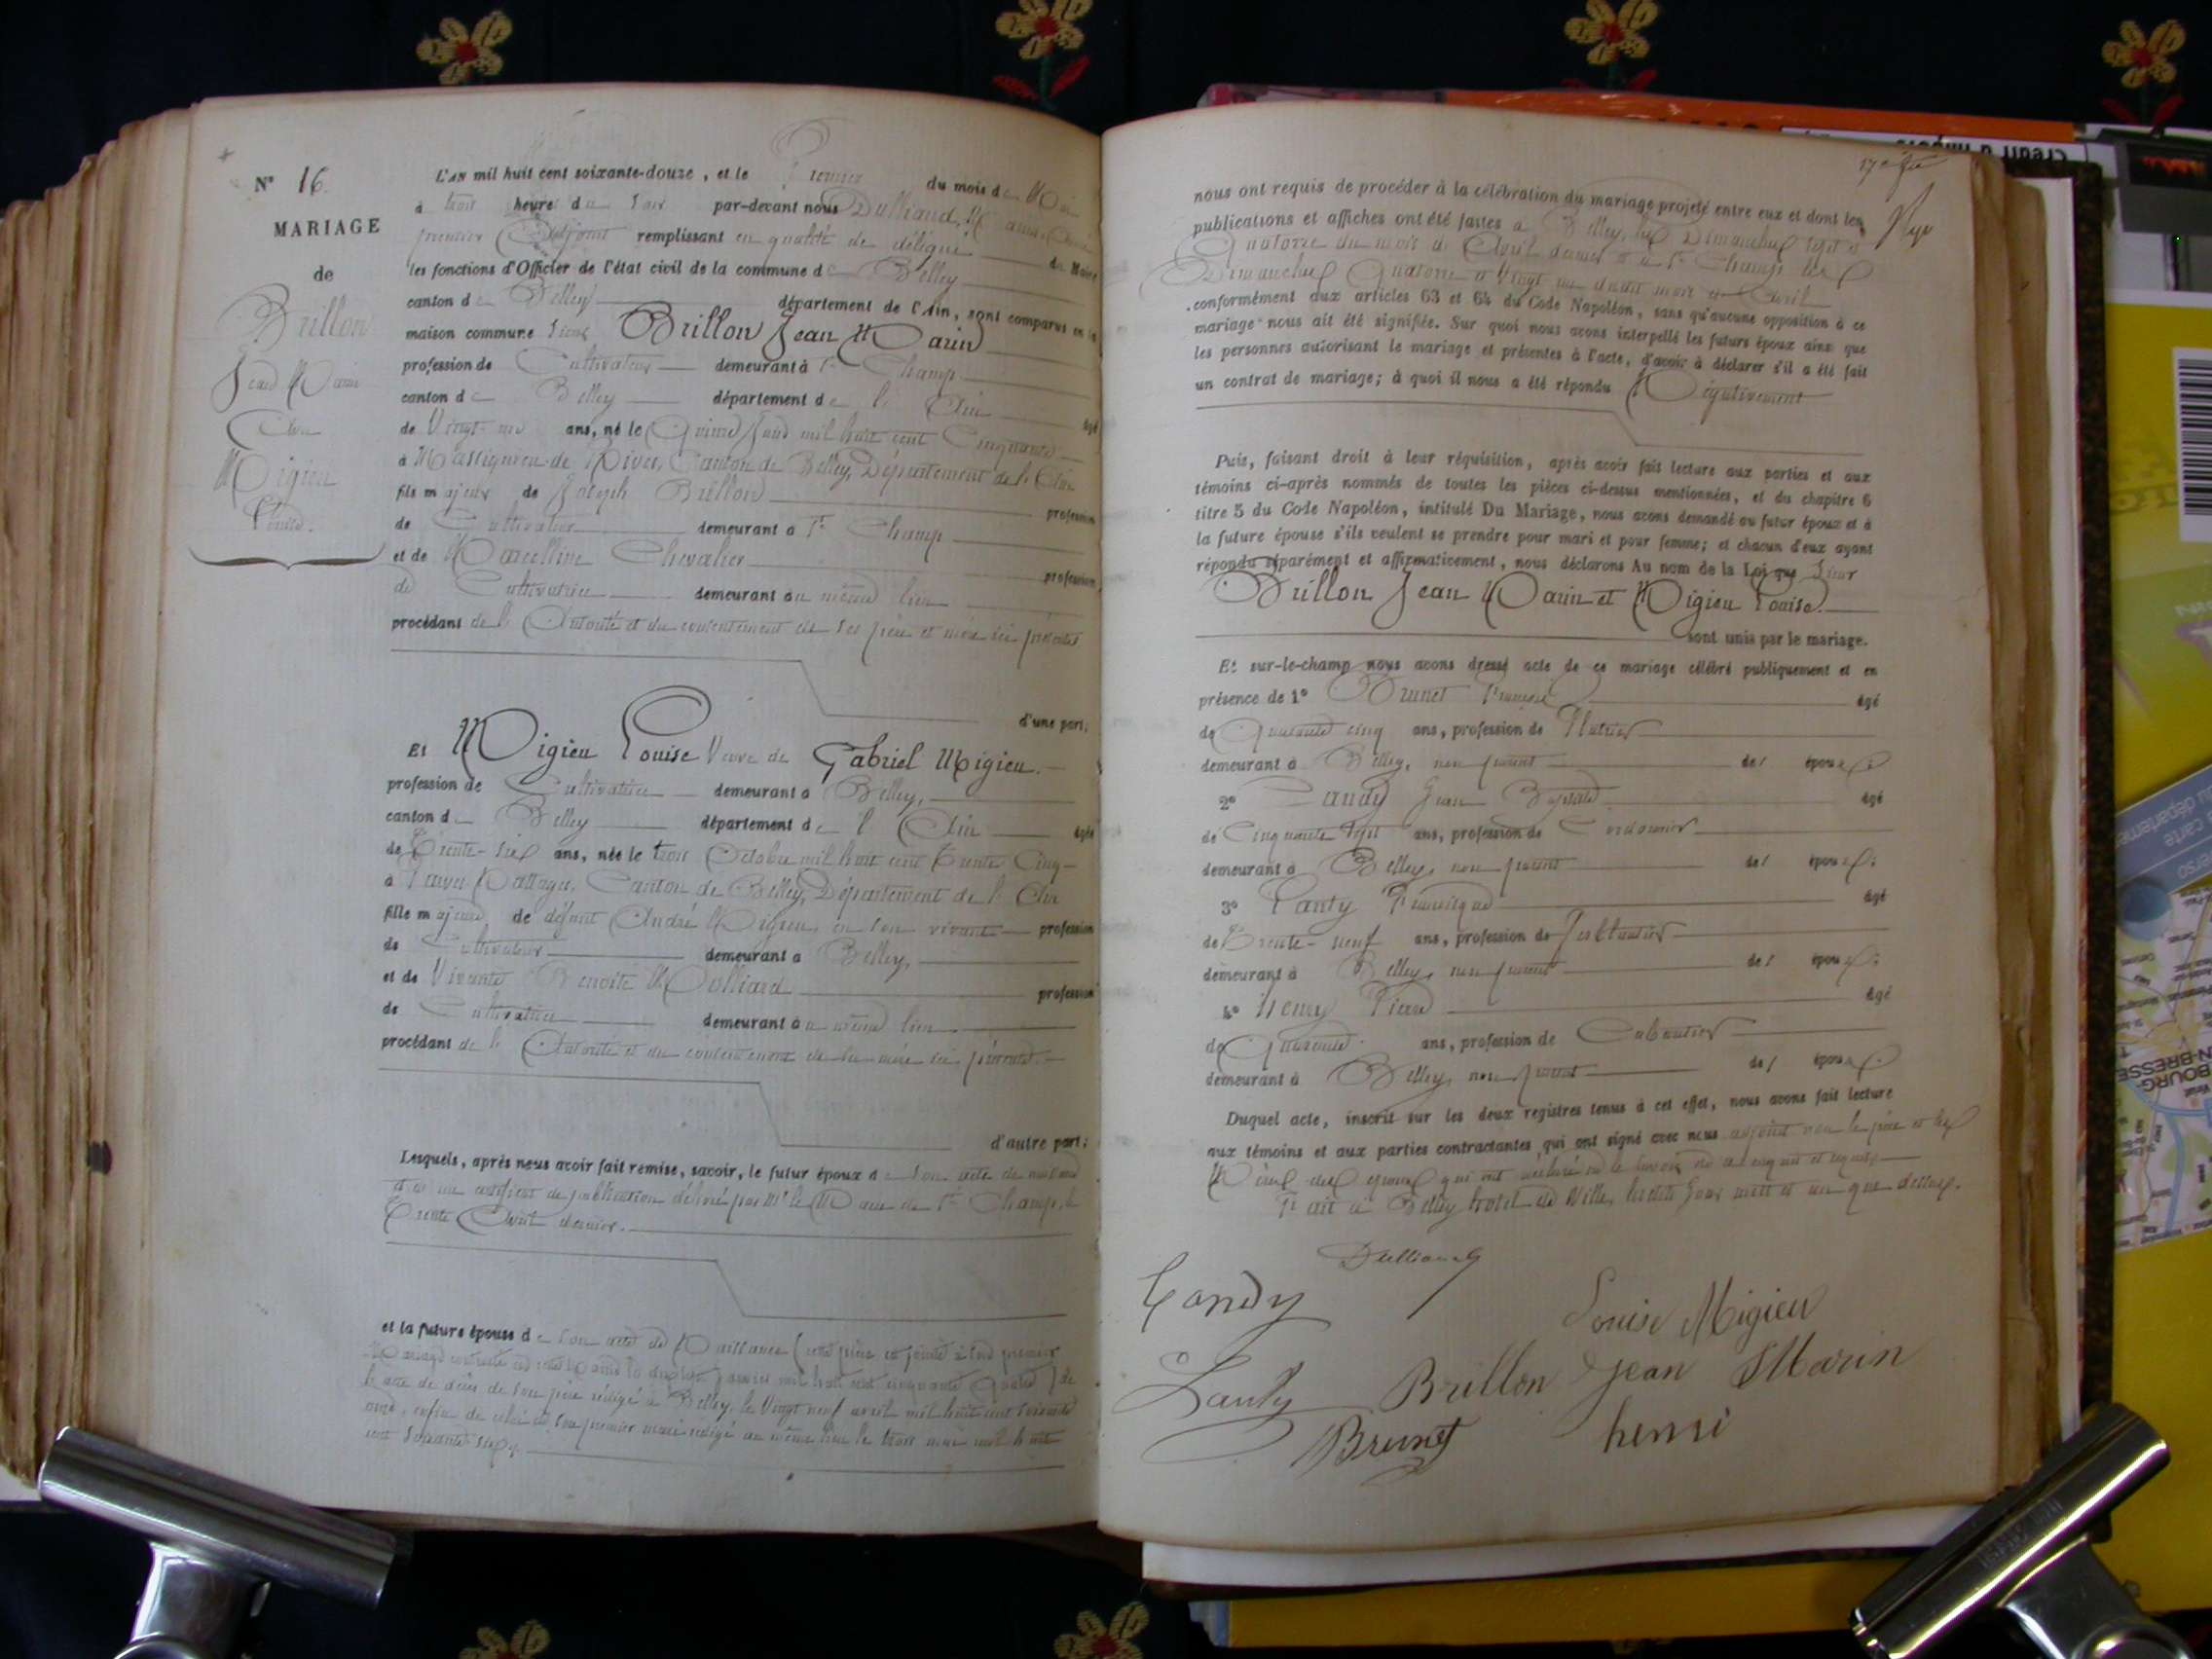 N° 16.
MARIAGE
de
Brillon
Jean Marin
Et
Migieu
Louise.
L'AN mil huit cent soixante-douze, et le Premier du mois de Mai
à trois heures du Soir par-devant nous Dulliand,
premier Adjoint remplissant en qualité de délégué du Maire
les fonctions d'Officier de l'état civil de la commune de Belley
canton de Belley département de l'Ain, sont comparus en la
maison commune Sieur Brillon Jean Marin
profession de Cultivateur demeurant à St Champ
canton de Belley département de l'Ain âgé
de Vingt-un ans, né le Quinze Juin mil huit cent Cinquante
à Massignieu-de-Rives, Canton de Belley, Département de l'Ain
fils majeur de Joseph Brillon profession
de Cultivateur demeurant à St Champ
et de Marcelline Chevalier profession
de Cultivatrice demeurant au même lieu
procédant de l'Autorité et du consentement de ses père et mère ici présents
d'une part;
Et Migieu Louise Veuve de Gabriel Migieu.
profession de Cultivatrice demeurant à Belley,
canton de Belley département de l'Ain âgée
de Trente-six ans, née le trois Octobre mil huit cent Trente Cinq
à Canton de Belley, Département de l'Ain
fille majeure de défunt André Migieu, en son vivant profession
de Cultivateur demeurant à Belley,
et de Vivante Benoite Molliard profession
de Cultivatrice demeurant au même lieu.
procédant de l'Autorité et du consentement de sa mère ici présente.
d'autre part;
Lesquels, après nous avoir fait remise, savoir, le futur époux de son acte de naissance
et de un certificat de publication délivré par Mr le Maire de St Champ, le
Trente Avril dernier.
et la future épouse de son acte de Naissance (cette pièce est jointe à son premier
Mariage contracté en cette Mairie le janvier mil huit cent cinquante quatre) de
le acte de décès de son père rédigé à Belley, le Vingt neuf avril mil huit cent soixante
onze, enfin de celui de son premier mari rédigé au même lieu le trois mai mil huit
cent soixante-six.
nous ont requis de procéder à la célébration du mariage projeté entre eux et dont les
publications et affiches ont été faites à Belley, les Dimanches sept et
Quatorze du mois de Avril dernier et à St Champ les
Dimanches Quatorze et Vingt un dudit mois de Avril
conformément aux articles 63 et 64 du Code Napoléon, sans qu'aucune opposition à ce
mariage nous ait été signifiée. Sur quoi nous avons interpellé les futurs époux ainsi que
les personnes autorisant le mariage et présentes à l'acte, d'avoir à déclarer s'il a été fait
un contrat de mariage; à quoi il nous a été répondu Négativement
Puis, faisant droit à leur réquisition, après avoir fait lecture aux parties et aux
témoins ci-après nommés de toutes les pièces ci-dessus mentionnées, et du chapitre 6
titre 5 du Code Napoléon, intitulé Du Mariage, nous avons demandé au futur époux et à
la future épouse s'ils veulent se prendre pour mari et pour femme; et chacun d'eux ayant
répondu séparément et affirmativement, nous déclarons Au nom de la Loi que Sieur
Brillon Jean Marin et Migieu Louise.
sont unis par le mariage.
Et sur-le-champ nous avons dressé acte de ce mariage célébré publiquement et en
présence de 1° Brunet François âgé
de Quarante cinq ans, profession de Plâtrier
demeurant à Belley, non parent des époux;
2° Candy Jean Baptiste âgé
de Cinquante Sept ans, profession de Cordonnier
demeurant à Belley, non parent des époux;
3° Lanty Dominique âgé
de Trente-neuf ans, profession de Ferblantier
demeurant à Belley, non parent des époux;
4° Henry Pierre âgé
de Quarante ans, profession de Cabaretier
demeurant à Belley, non parent des époux.
Duquel acte, inscrit sur les deux registres tenus à cet effet, nous avons fait lecture
aux témoins et aux parties contractantes qui ont signé avec nous adjoint non le père et les
Mères des époux qui ont déclaré ne le savoir de ce enquis et requis.
Fait à Belley hôtel de Ville, lesdits jour mois et an que dessus.
Dulliand
Candy
Louise Migieu
Lanty
Brillon Jean Marin
Brunet
henri